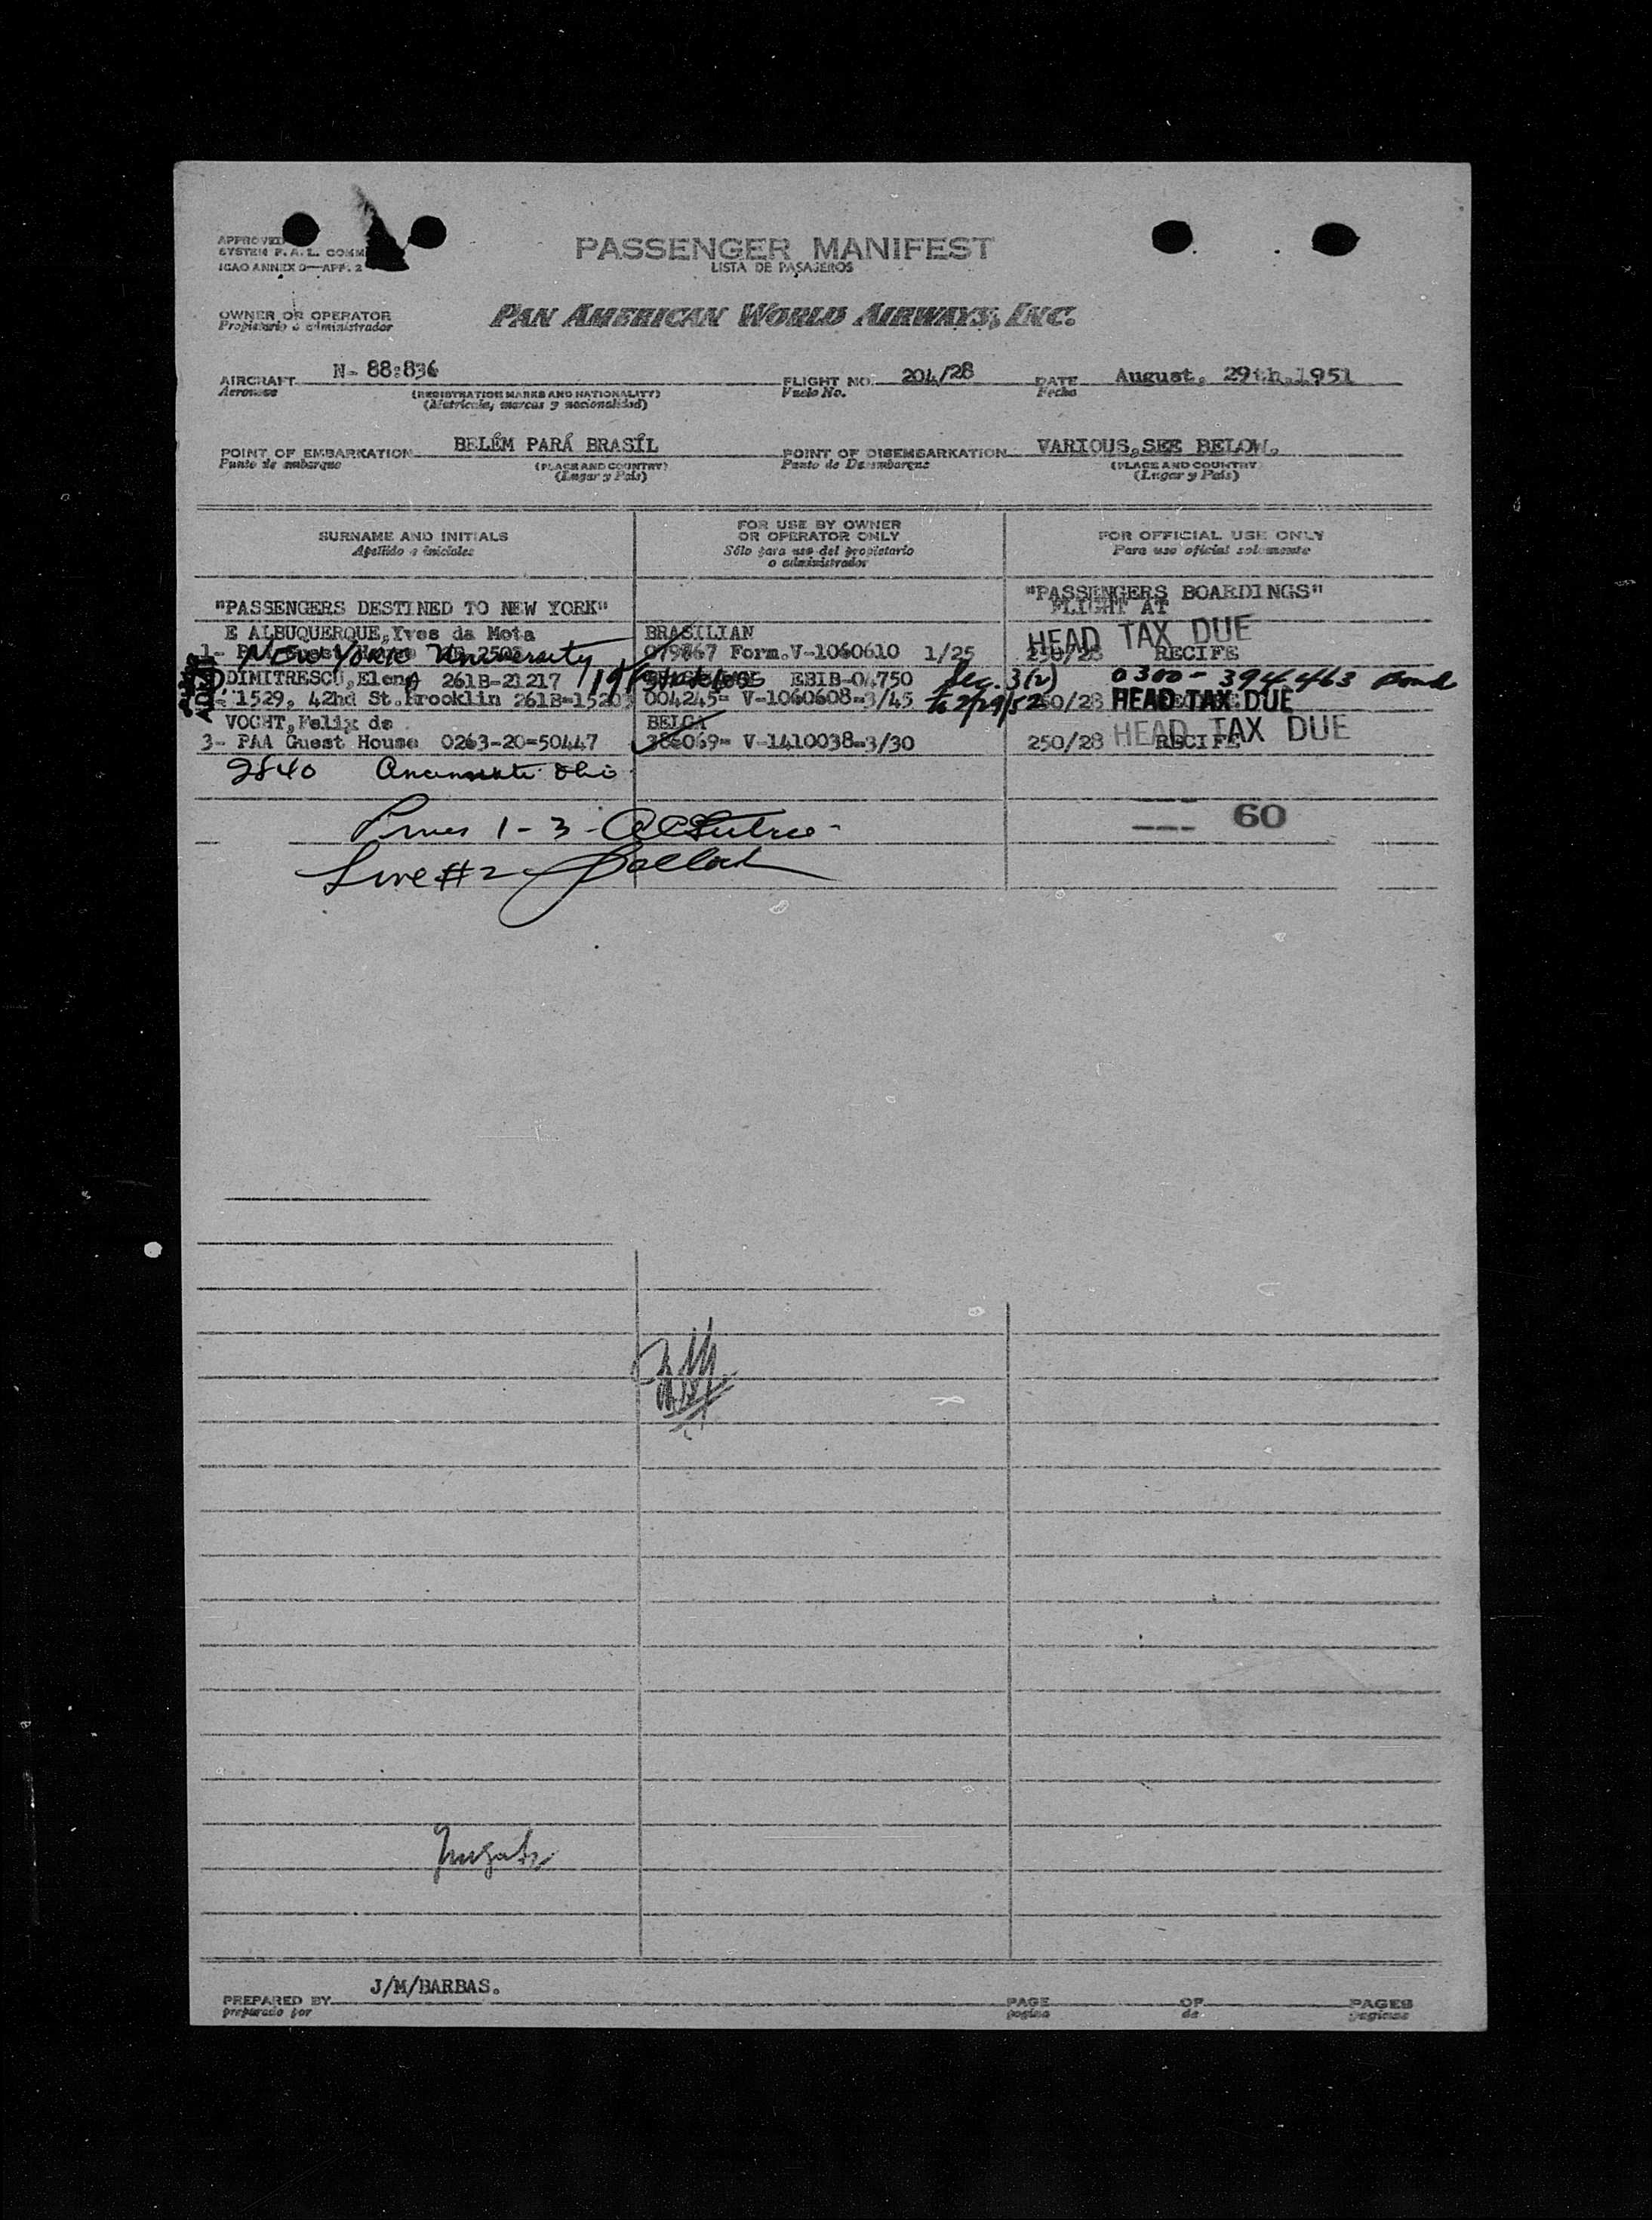 APPROVED
SYSTEM F.A.L. COMM
ICAO ANNEX 9—APP. 2
PASSENGER MANIFEST
LISTA DE PASAJEROS
OWNER OR OPERATOR
Propietario o administrador
PAN AMERICAN WORLD AIRWAYS, INC.
AIRCRAFT N- 88:836 FLIGHT NO. 204/28 DATE August, 29th.1951
Aeronave (REGISTRATION MARKS AND NATIONALITY) Vuelo No. Fecha
(Matrícula, marcas y nacionalidad)
POINT OF EMBARKATION BELÉM PARÁ BRASÍL POINT OF DISEMBARKATION VARIOUS,SEE BELOW.
Punto de embarque (PLACE AND COUNTRY) Punto de Desembarque (PLACE AND COUNTRY)
(Lugar y País) (Lugar y País)
SURNAME AND INITIALS FOR USE BY OWNER OR OPERATOR ONLY FOR OFFICIAL USE ONLY
Apellido e iniciales Sólo para uso del propietario o administrador Para uso oficial solamente
"PASSENGERS DESTINED TO NEW YORK" "PASSENGERS BOARDINGS"
FLIGHT AT
E ALBUQUERQUE,Yves da Mota BRASILIAN HEAD TAX DUE
1- New York University 079867 Form.V-1060610 1/25 250/28 RECIFE
DIMITRESCU,Elena 261B-21217 EBIB-04750 Sec. 3(2) 0300-394463 Bond
1529, 42nd St.Brooklin 261B-15203 004245= V-1060608=3/45 to 2/29/52 250/28 HEAD TAX DUE
VOGHT,Felix de BELGA HEAD TAX DUE
3- PAA Guest House 0263-20=50447 386069= V-1410038=3/30 250/28 RECIFE
2840 Cincinnati Ohio
60
1-3-
Line #2
PREPARED BY J/M/BARBAS. PAGE OF PAGES
preparado por pagina de paginas